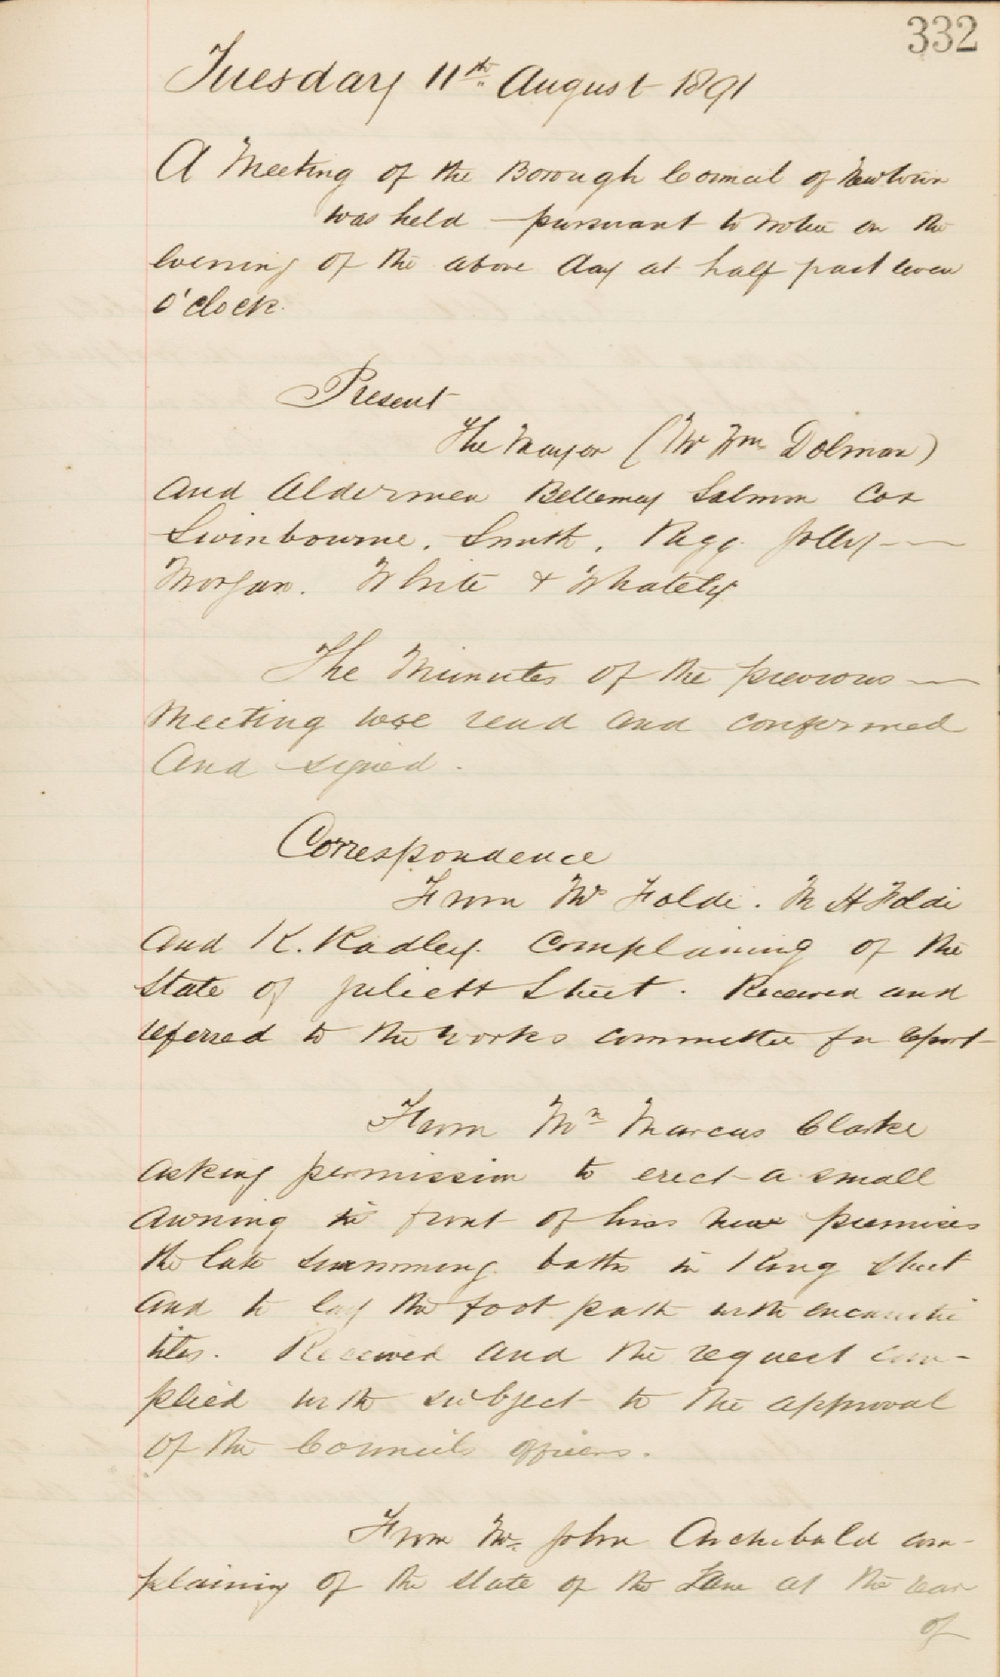 332
Tuesday 11th August 1891
A Meeting of the Borough Council of Newtown
was held pursuant to notice on the
evening of the above day at half past seven
o'clock.
Present
The Mayor (Mr Wm Dolman)
and Aldermen Bellemey Salmon Cox
Swinbourne. Smith. Rigg. Jolly
Morgan. White & Whately
The Minutes of the previous
Meeting were read and confirmed
and signed.
Correspondence
From Mr Foldi. M H Foldi
and R. Radley. Complaining of the
State of Juliett Street. Received and
referred to the works committee for report
From Mr Marcus Clarke
asking permission to erect a small
awning in front of his new premises
the late swimming baths in King Street
and to lay the foot path with encaustic
tiles. Received and the request com-
plied with subject to the approval
of the Councils officers.
From Mr John Archibald com-
plaining of the state of the Lane at the rear
of